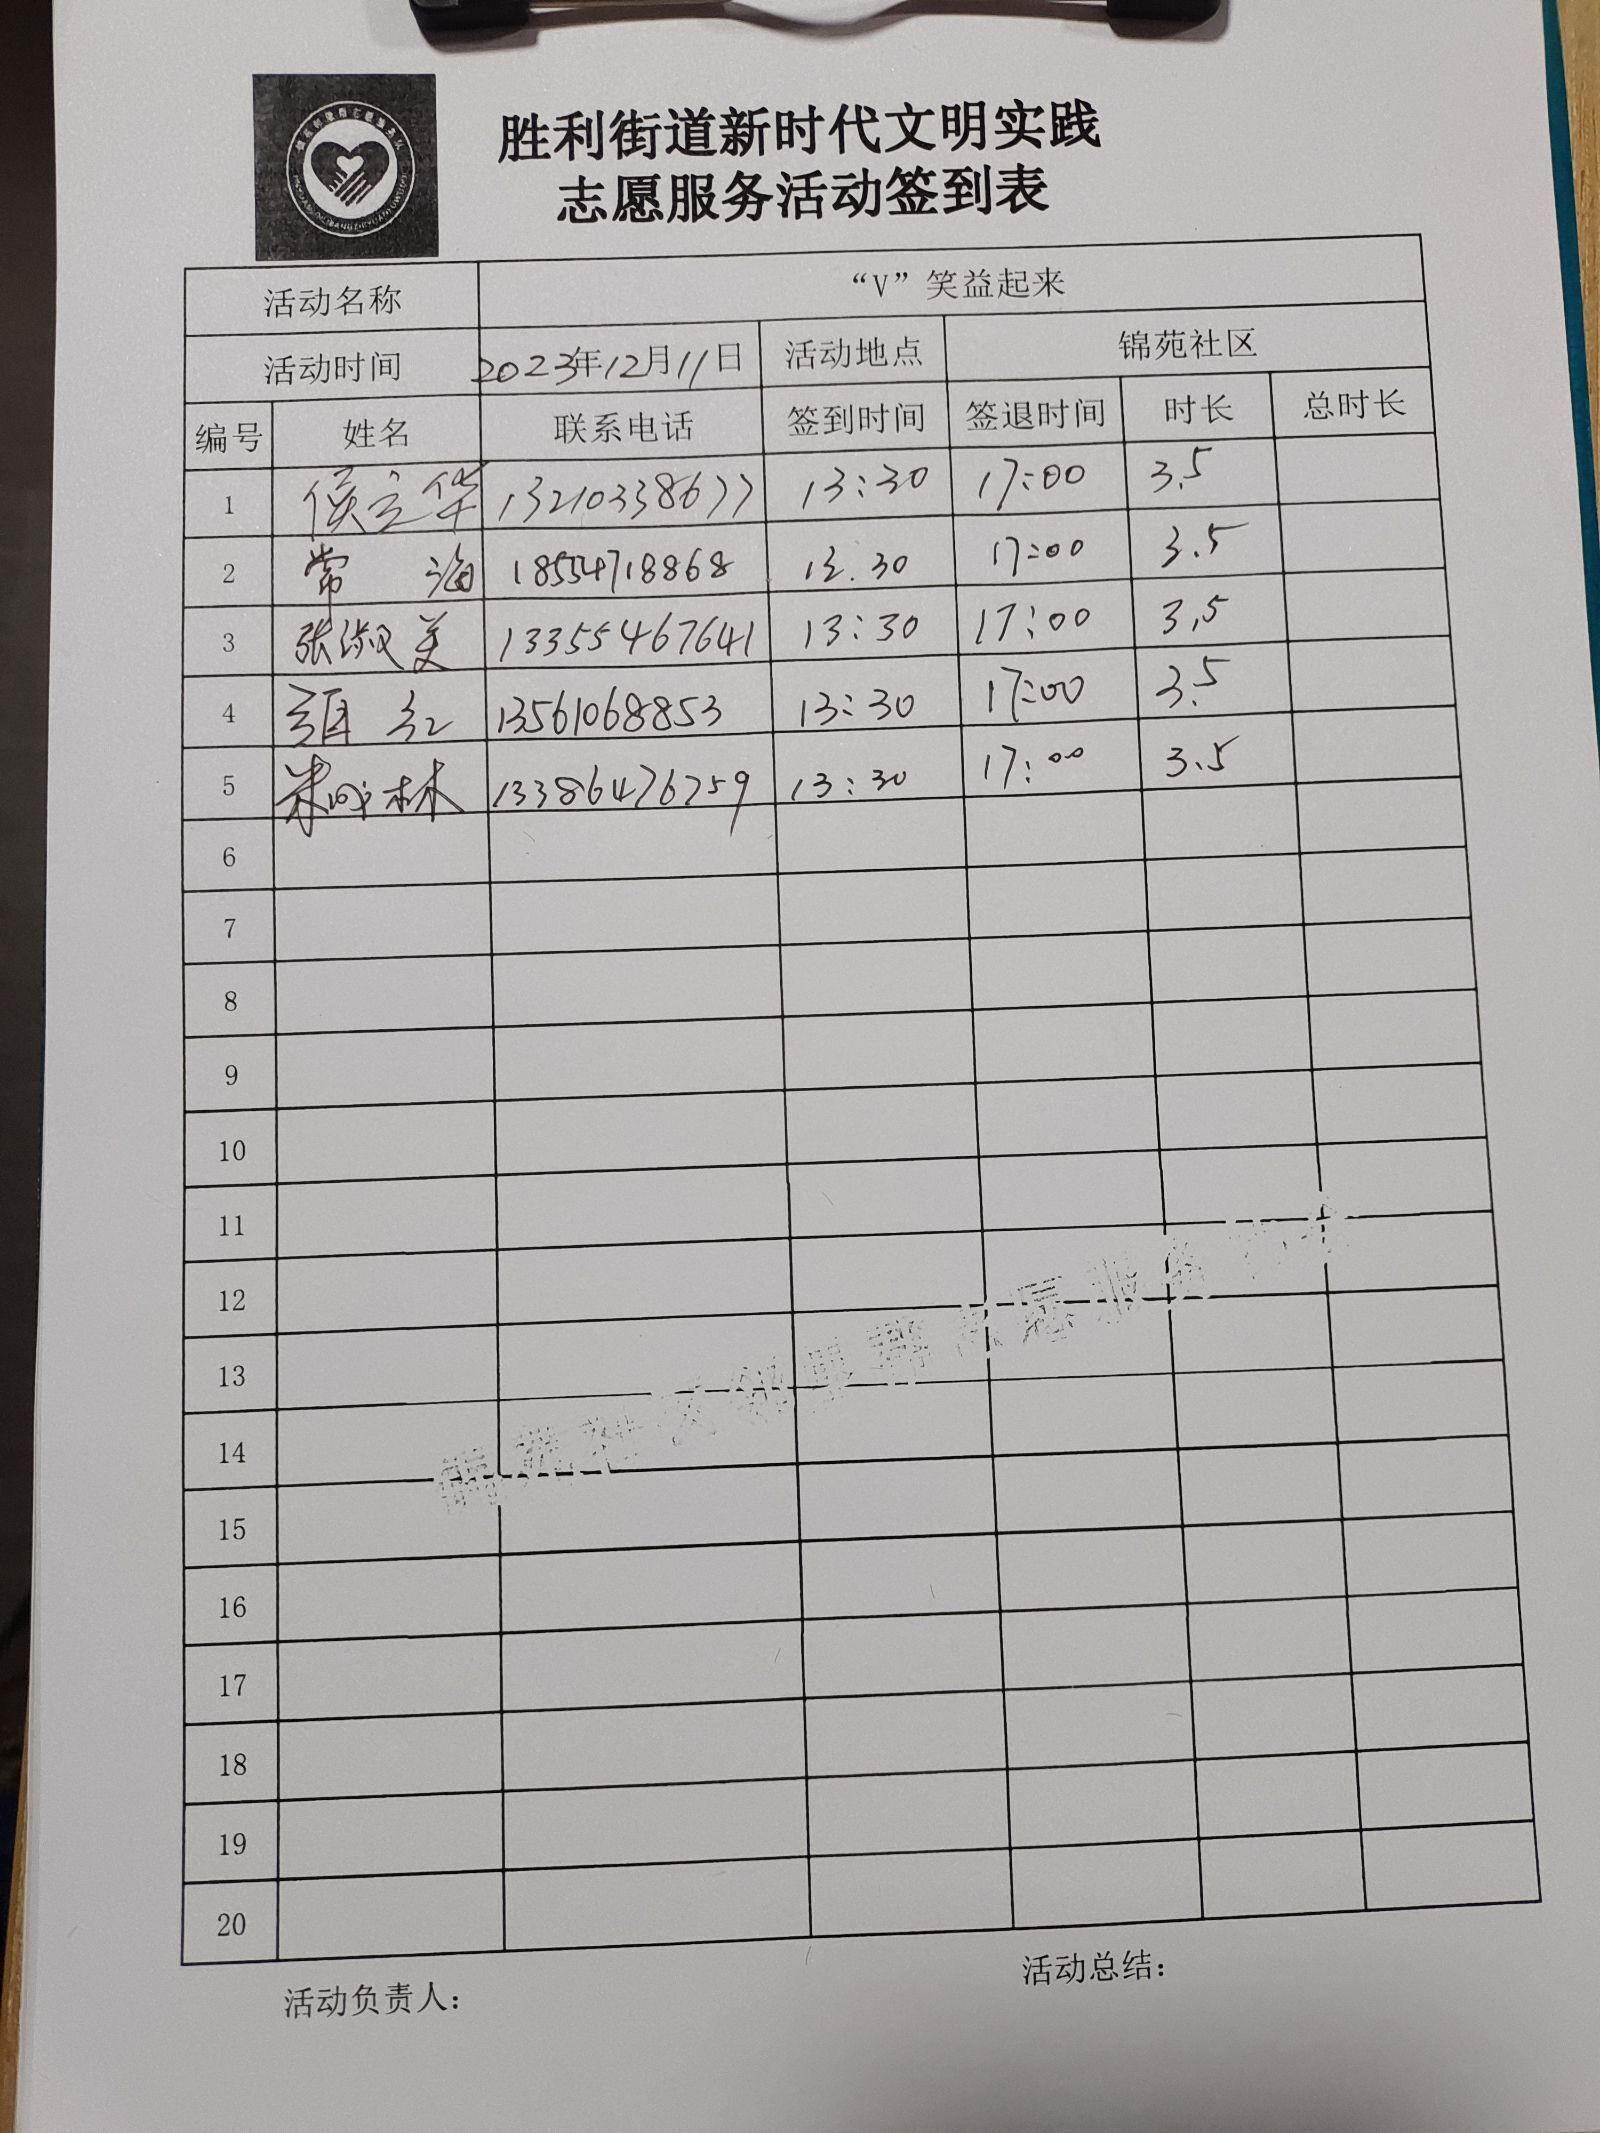 胜利街道新时代文明实践
志愿服务活动签到表
活动名称 “V”笑益起来
活动时间 2023年12月11日 活动地点 锦苑社区
编号 姓名 联系电话 签到时间 签退时间 时长 总时长
1 侯立华 13210338677 13:30 17:00 3.5
2 常海 18554718868 13.30 17:00 3.5
3 张淑美 13355467641 13:30 17:00 3.5
4 红 13561068853 13:30 17:00 3.5
5 林 13386476759 13:30 17:00 3.5
6
7
8
9
10
11
12
13
14
15
16
17
18
19
20
社区邻里帮志愿服务
活动负责人: 活动总结: